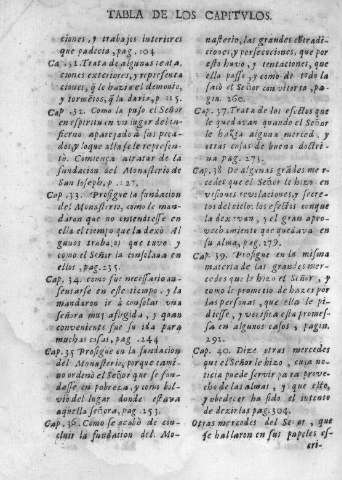 TABLA DE LOS CAPITVLOS.
ciones, y trabajos interiores
que padecia, pag. 104
Ca. 31. Trata de algunas tenta
ciones exteriores, y representa
ciones, q̃ le hazia el demonio,
y tormẽtos, q̃ la daua, p. 115.
Cap. 32. Como la puso el Señor
en espiritu en vn lugar del in-
fierno aparejado a sus peca-
dos, y lo que alli se le represen-
to. Comiença a tratar de la
fundacion del Monasterio de
San Joseph, p. 127.
Cap. 33. Prosigue la fundacion
del Monasterio, como le man-
daron que no entendiesse en
ella el tiempo que la dexò. Al
gunos trabajos que tuvo y
como el Señor la consolaua en
ellos, pag. 235.
Cap. 34. como fue necessario au-
sentarse en este tiempo, y la
mandaron ir à consolar vna
señora muy afligida, y quan
conveniente fue su ida para
muchas cosas, pag. 244
Cap. 35 Prosigue en la fundacion
del Monasterio, porque cami-
no ordenò el Señor que se fun-
dasse en pobreza, y como bol-
vio del lugar donde estava
aquella señora, pag. 253.
Cap. 36. Como se acabò de con-
cluir la fundacion del Mo-
nasterio, las grandes cõtradi-
ciones, y persecuciones, que por
esto huvo, y tentaciones, que
ella passò, y como de todo la
sacò el Señor con vitoria, pa-
gin. 260.
Cap. 37. Trata de los efectos que
le quedavan quando el Señor
le hazia alguna merced, y
otras cosas de buena doctri-
na pag. 273.
Cap. 38 De algunas grãdes mer-
cedes que el Señor le hizo en
visiones, revelaciones, y secre-
tos del cielo: los efectos con que
la dexavan, y el gran apro-
vechamiento que quedava en
su alma, pag. 279.
Cap. 39. Prosigue en la misma
materia de las grandes mer-
cedes que le hizo el Señor, y
como le prometio de hazer por
las personas, que ella le pi-
diesse, y verifica esta promes-
sa en algunos casos, pagin.
292.
Cap. 40. Dize otras mercedes
que el Señor le hizo, cuya no-
ticia puede servir para prove-
cho de las almas, y que esto,
y obedecer ha sido el intento
de dezirlas pag. 304.
Otras mercedes del Señor, que
se hallaron en sus papeles es-
cri-